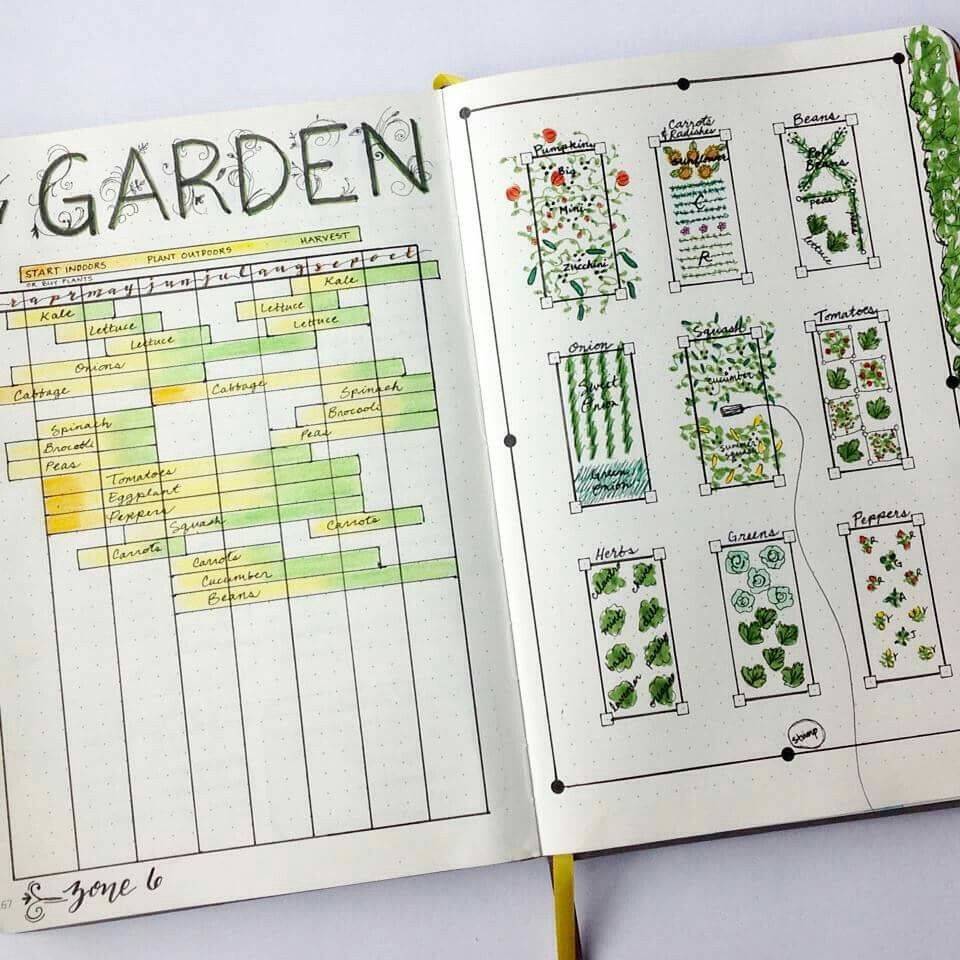 GARDEN
START INDOORS PLANT OUTDOORS HARVEST
OR BUY PLANTS
r apr may jun jul aug sep oct
Kale
Kale
Lettuce
Lettuce
Lettuce
Lettuce
Onions
Cabbage
Cabbage
Spinach
Spinach
Brocooli
Brocoli
Peas
Peas
Tomatoes
Eggplant
Peppers
Squash
Carrots
Carrots
Carrots
Cucumber
Beans
67
zone 6
Pumpkins
Big
Mini
Zucchini
Carrots
& Radishes
Sunflower
C
R
Beans
Pole
Beans
peas
lettuce
Onion
Sweet
Onion
Green
Onion
Squash
cucumber
summer
squash
Tomatoes
Herbs
Lavender
Greens
Peppers
R
R
G
R
R
A
Y
Y
J
Y
Y
stump